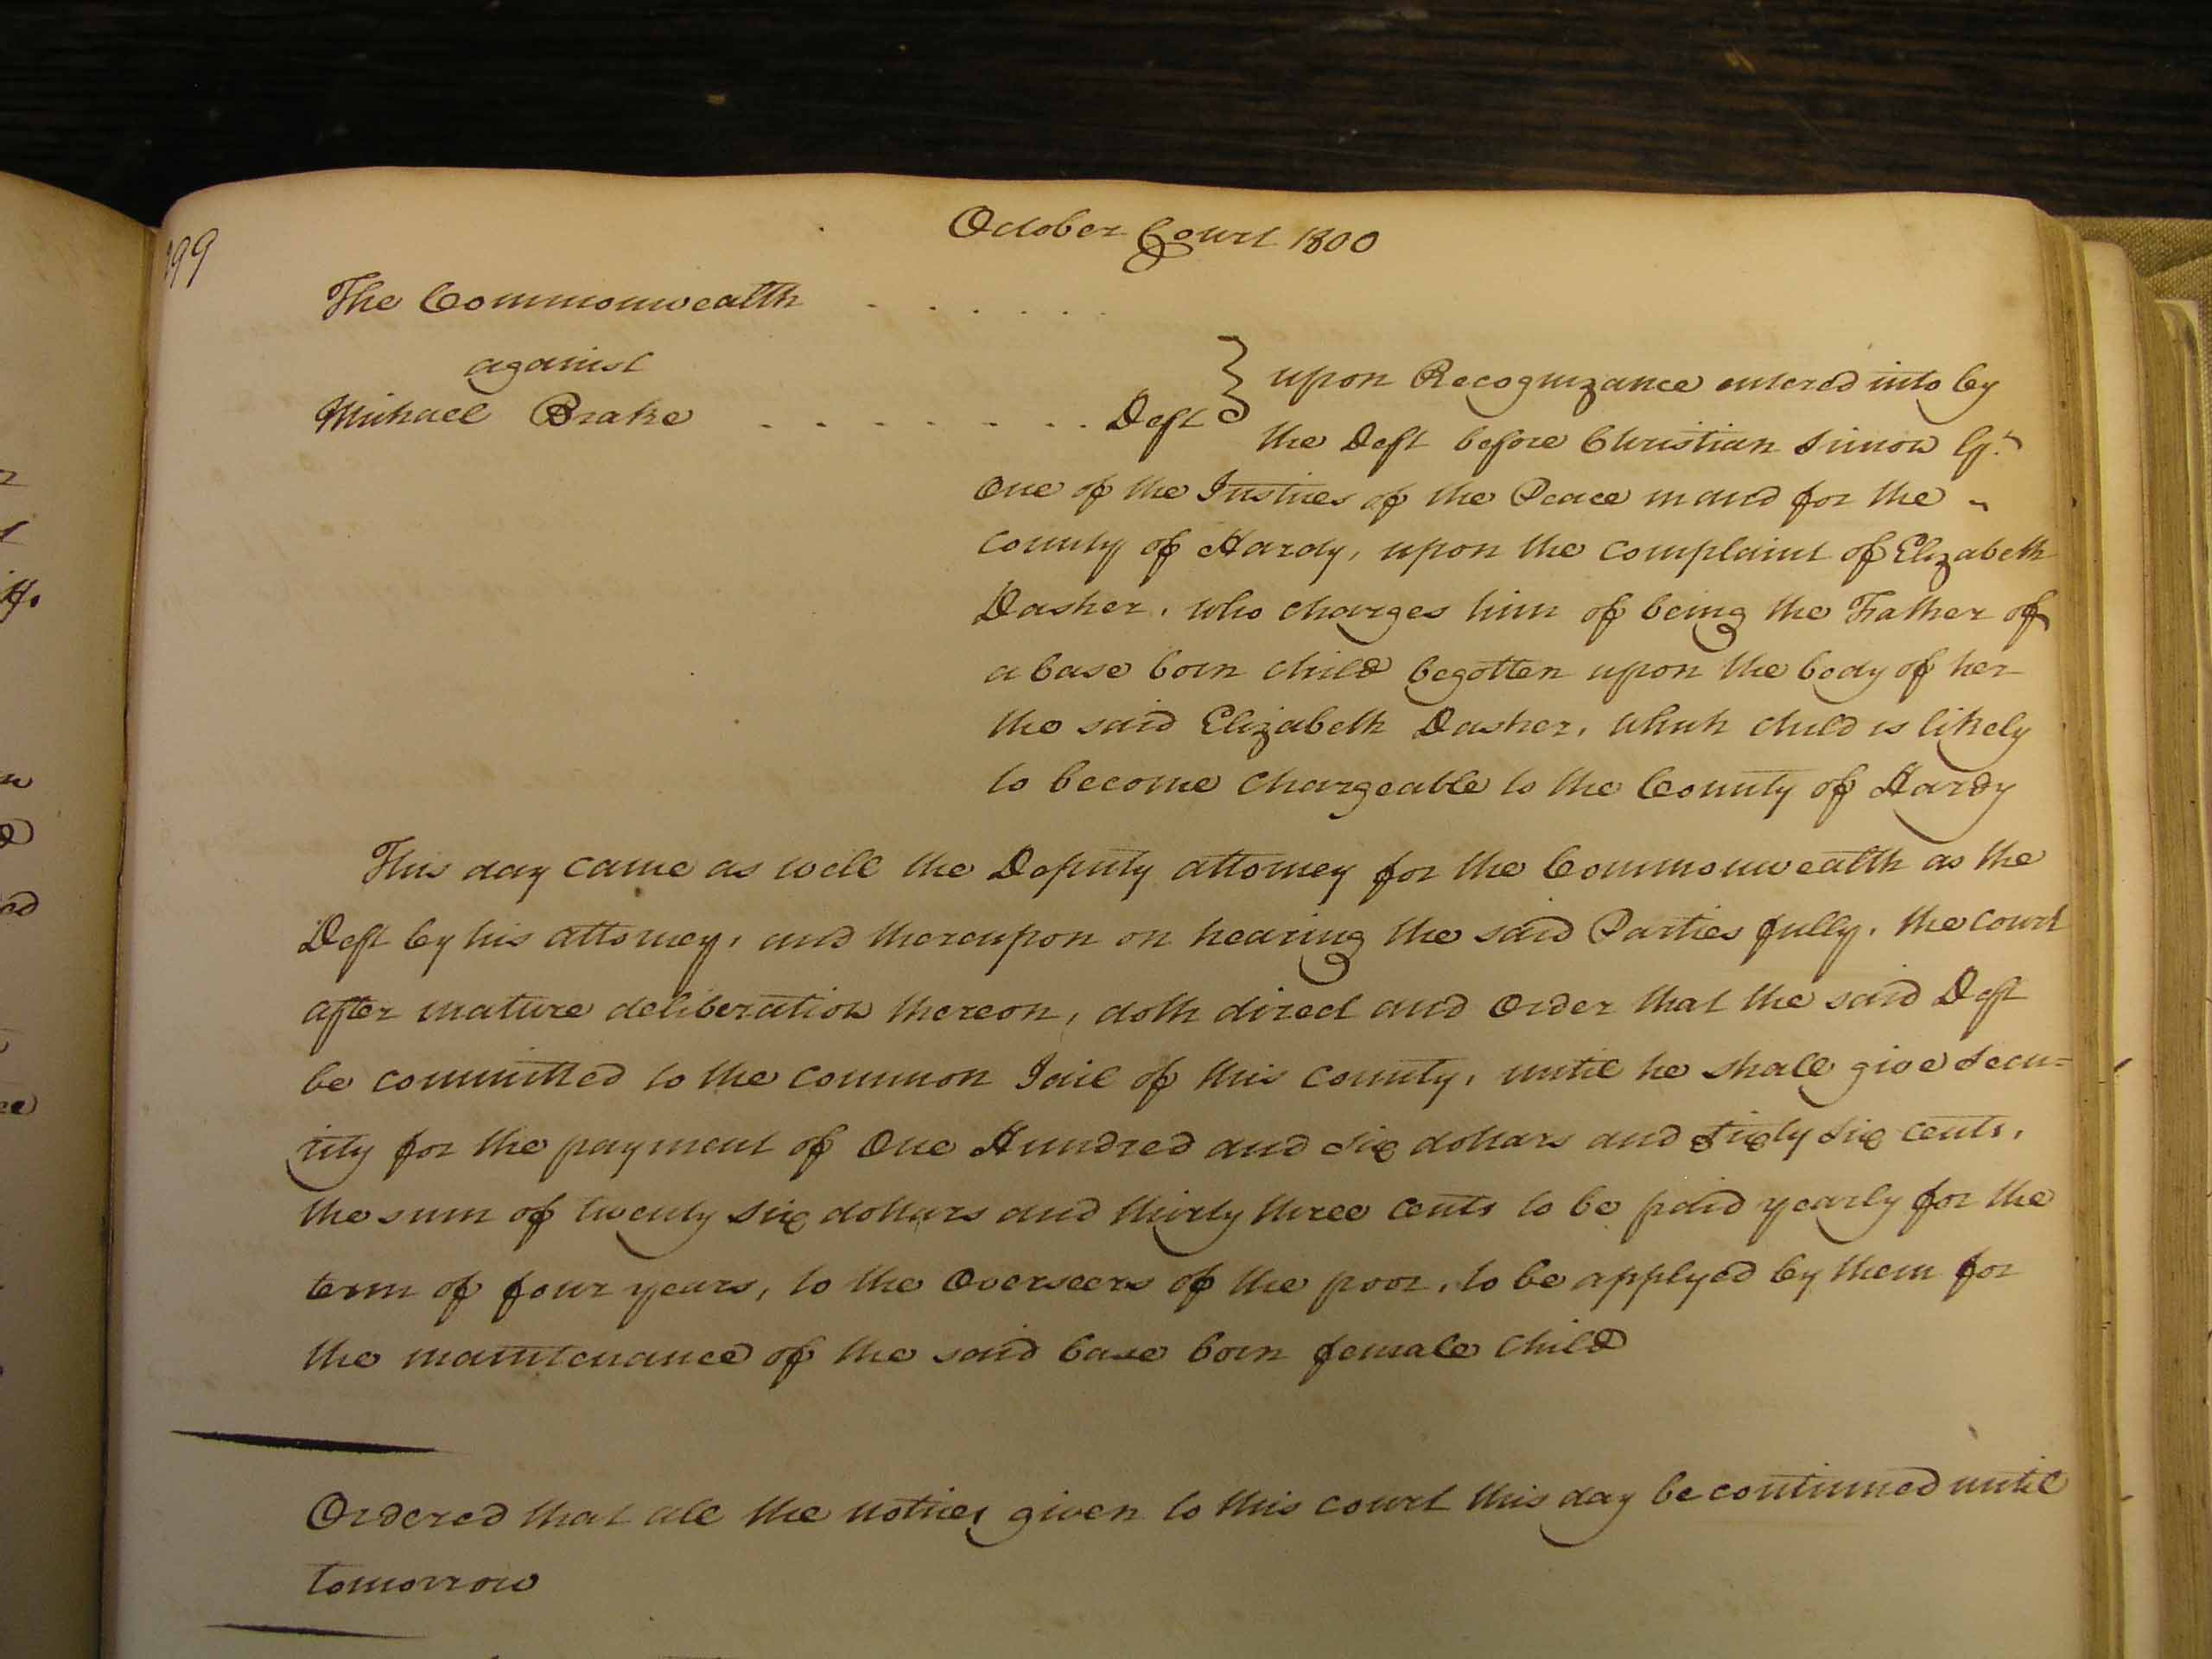 October Court 1800
99
The Commonwealth . . . . . .
against
Michael Brake . . . . . . . . Deft } upon Recognizance entered into by
the Deft before Christian Simon
One of the Justices of the Peace in and for the
County of Hardy, upon the complaint of Elizabeth
Dasher, who charges him of being the Father of
a base born child begotten upon the body of her
the said Elizabeth Dasher, which child is likely
to become chargeable to the County of Hardy
This day came as well the Deputy attorney for the Commonwealth as the
Deft by his attorney, and thereupon on hearing the said Parties fully, the court
after mature deliberation thereon, doth direct and Order that the said Deft
be committed to the common Jail of this County, until he shall give Secu=
rity for the payment of One Hundred and Six dollars and Sixty Six cents,
the sum of twenty six dollars and thirty three cents to be paid yearly for the
term of four years, to the Overseers of the poor, to be applyed by them for
the maintenance of the said base born female Child
Ordered that all the notices given to this court this day be continued until
tomorrow